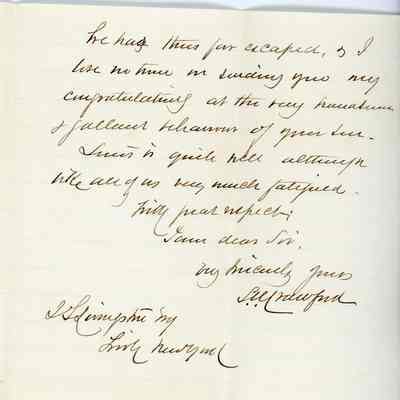 he has thus far escaped, & I
lose no time in sending you my
congratulations at the very handsome
& gallant behaviour of your son.
Lewis is quite well although
like all of us very much fatigued.
With great respect;
I am dear Sir,
very sincerely yours
S. W. Crawford
Livingston Esq
New York